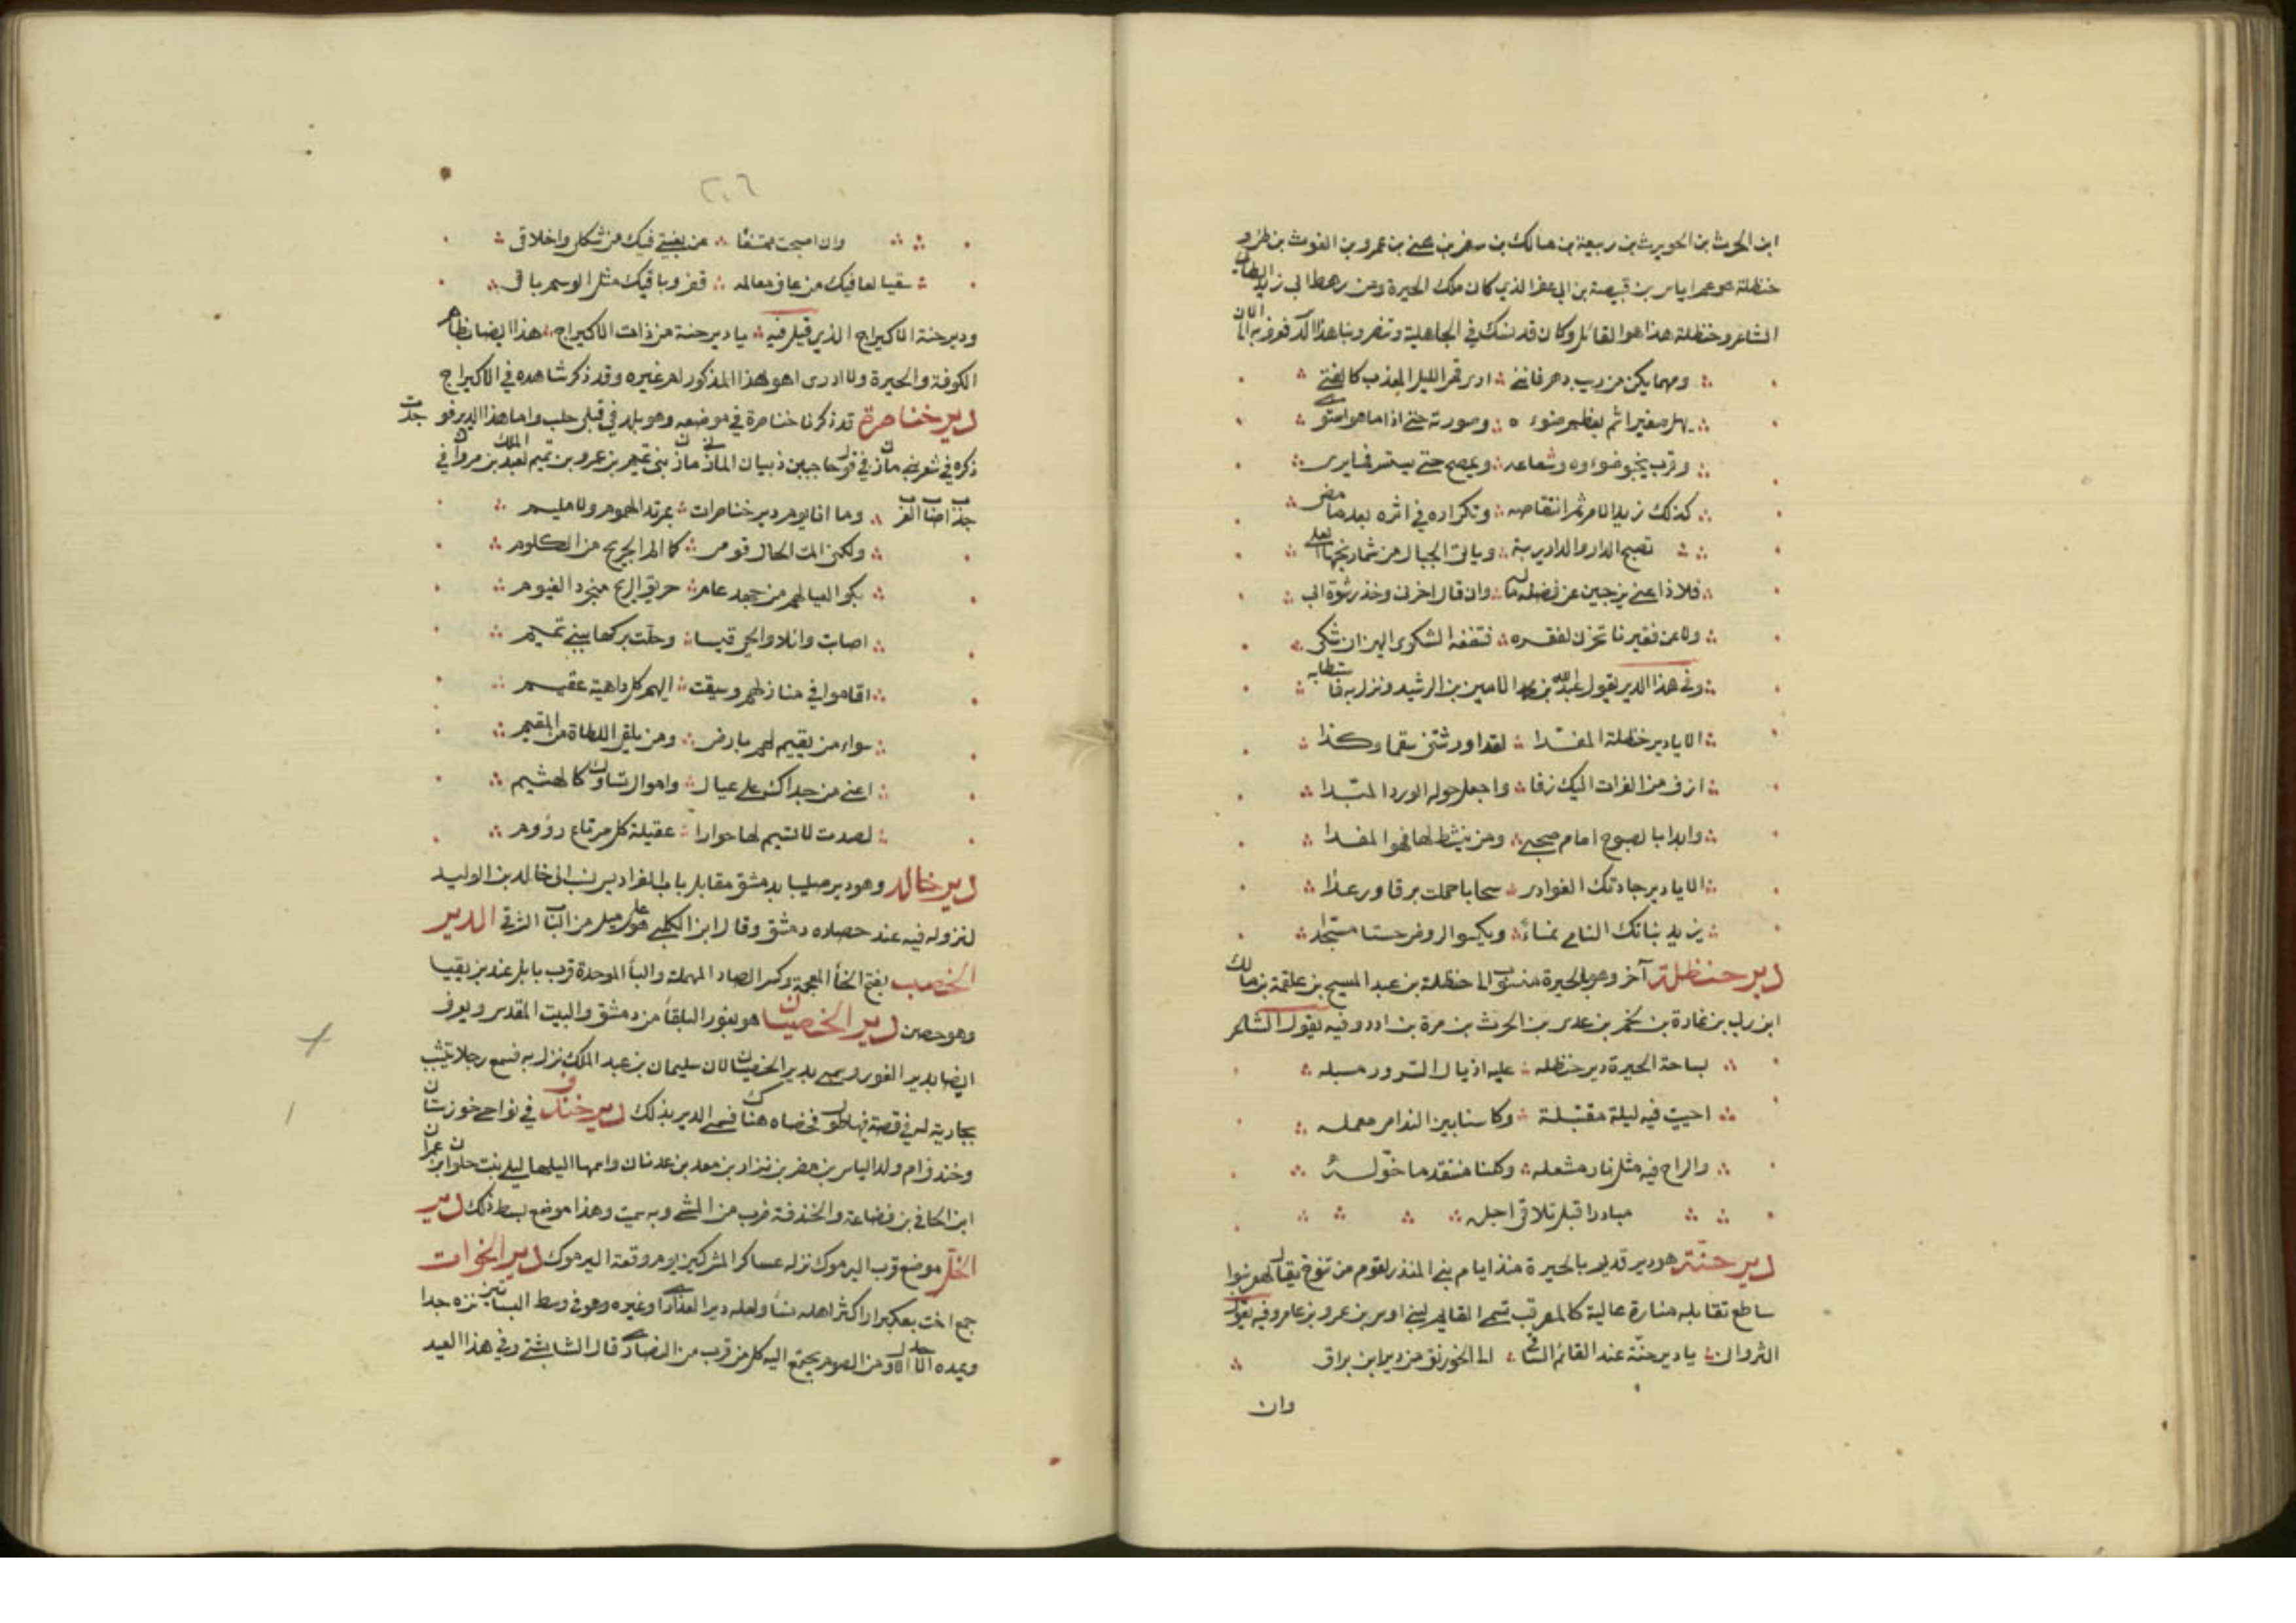 ابن الحرث بن الحويرث بن ربيعة بن مالك بن سفر بن هني بن عمرو بن الغوث بن طي و
حنظلة هو عم اياس بن قبيصة بن ابي عفر الذي كان ملك الحيرة ومن رهط ابي زبيد الطائي
الشاعر وحنظلة هذا هو القائل وكان قد نسك في الجاهلية وتنصر وبنا هذا الدير فعرف به الى الان
ومهما يكن من ريب دهر فانني ∴ ارى قمر الليل المعذب كالفتى
يهل صغيرا ثم يعظم ضوءه ∴ وصورته حتى اذا ما هو استوى
وقرب يخبو ضوءه وشعاعه ∴ ويمصح حتى يستسر فما يرى
كذلك زيد الامر ثم انتقاصه ∴ وتكراره في اثره بعد ما مضى
تصبح الدار والدار يبة ∴ وياتي الجبال من شماريخها العلى
فلا ذا غنى يرجين عن فضل ماله ∴ وان قال اخرني وخذ رشوة ابى
ولا عن فقير ياتخرن لفقره ∴ فتنفعه الشكوى اليهن ان شكى
وفي هذا الدير يقول عبد الله بن محمد الامين بن الرشيد ونزل به فاستطابه
الا يا دير حنظلة المفدا ∴ لقد اورثتني سقما وكذا
ازف من الفرات اليك زقا ∴ واجعل حوله الورد المندا
وابدا بالصبوح امام صحبي ∴ ومن ينشط لها فهو المفدا
الا يا دير جادتك الغوادي ∴ سحابا حملت برقا ورعدا
يزيد بناتك النامي نماء ∴ ويكسو الروض حسنا مستجدا
دير حنظلة آخر وهو بالحيرة منسوب الى حنظلة بن عبد المسيح بن علقمة بن مالك
ابن ربي بن نمارة بن لخم بن عدي بن الحرث بن مرة بن ادد وفيه يقول الشاعر
بساحة الحيرة دير حنظله ∴ عليه اذيال السرور مسبله
احييت فيه ليلة مقتبلة ∴ وكاسنا بين الندامى معمله
والراح فيه مثل نار مشعله ∴ وكلنا منتقد ما خوله
مبادرا قبل تلاقي اجله
دير حنة هو دير قديم بالحيرة منذ ايام بني المنذر لقوم من تنوخ يقال لهم بنوا
ساطع تقابله منارة عالية كالمرقب تسمى القائم لبني اوس بن عمرو بن عامر وفيه يقول
الثرواني ∴ يا دير حنة عند القائم الساقي ∴ الى الخورنق من دير ابن براق
وان
٢٠٦
وان اصبحت ممتنعا ∴ من بغيتي فيك من شكلي واخلاقي
سقيا لعافيك من عاف معالمه ∴ قفر وباقيك مثل الوسم باقي
ودير حنة الاكيراح الذي قيل فيه ∴ يا دير حنة من ذات الاكيراح ∴ هذا ايضا بظاهر
الكوفة والحيرة ولا ادري اهو هذا المذكور ام غيره وقد ذكر شاهده في الاكيراح
دير خناصرة قد ذكرنا خناصرة في موضعه وهو بلد في قبلي حلب واما هذا الدير فوجدت
ذكره في شعر بني مازن في قول حاجب بن ذبيان المازني مازن بني تميم بن عمرو بن تميم لعبد الملك بن مروان في
جدب اصاب العرب ∴ وما انا يوم دير خناصرات ∴ بمرتد الهموم ولا مليم
ولكني المت لحال قومي ∴ كما الم الجريح من الكلوم
بكوا لعيالهم من جهد عام ∴ خريق الريح منجرد الغيوم
اصابت وائلا والحي قيسا ∴ وحلت بركها ببني تميم
اقاموا في منازلهم وسيقت ∴ اليهم كل داهية عقيم
سواء من يقيم لهم بارض ∴ ومن يلقي اللطاة من المقيم
اعني من جداك على عيال ∴ واموال تساوك كالهشيم
لصدت لا تشيم لها حوارا ∴ عقيلة كل مرتاع رؤوم
دير خالد وهو دير صليبا بدمشق مقابل باب الفراديس نسب الى خالد بن الوليد
لنزوله فيه عند حصاره دمشق وقال ابن الكلبي هو على ميل من الباب الشرقي الدير
الخصيب بفتح الخأ المعجمة وكسر الصاد المهملة والبأ الموحدة قرب بابل عند بزيقيا
وهو حصن دير الخصيان هو بغور البلقأ من دمشق والبيت المقدس ويعرف
ايضا بدير الغور وسمي بدير الخصيان لان سليمان بن عبد الملك نزل به فسمع رجلا يشبب
بجارية له في قصة فيها طول فخصاه هناك فسمي الدير بذلك دير خندف في نواحي خوزستان
وخندف ام ولد الياس بن مضر بن نزار بن معد بن عدنان واسمها ليلى بنت حلوان بن عمران
ابن الحافي بن قضاعة والخندفة ضرب من المشي وبه سميت وهذا موضع بسط ذلك دير
الخل موضع قرب اليرموك نزله عساكر المشركين يوم وقعة اليرموك دير الخوات
جمع اخت بعكبرا اكثر اهله نسأ ولعله دير العذارى او غيره وهو في وسط البساتين نزه جدا
وعيده الاحد الاول من الصوم يجتمع اليه كل من قرب من النصارى قال الشابشتي وفي هذا العيد